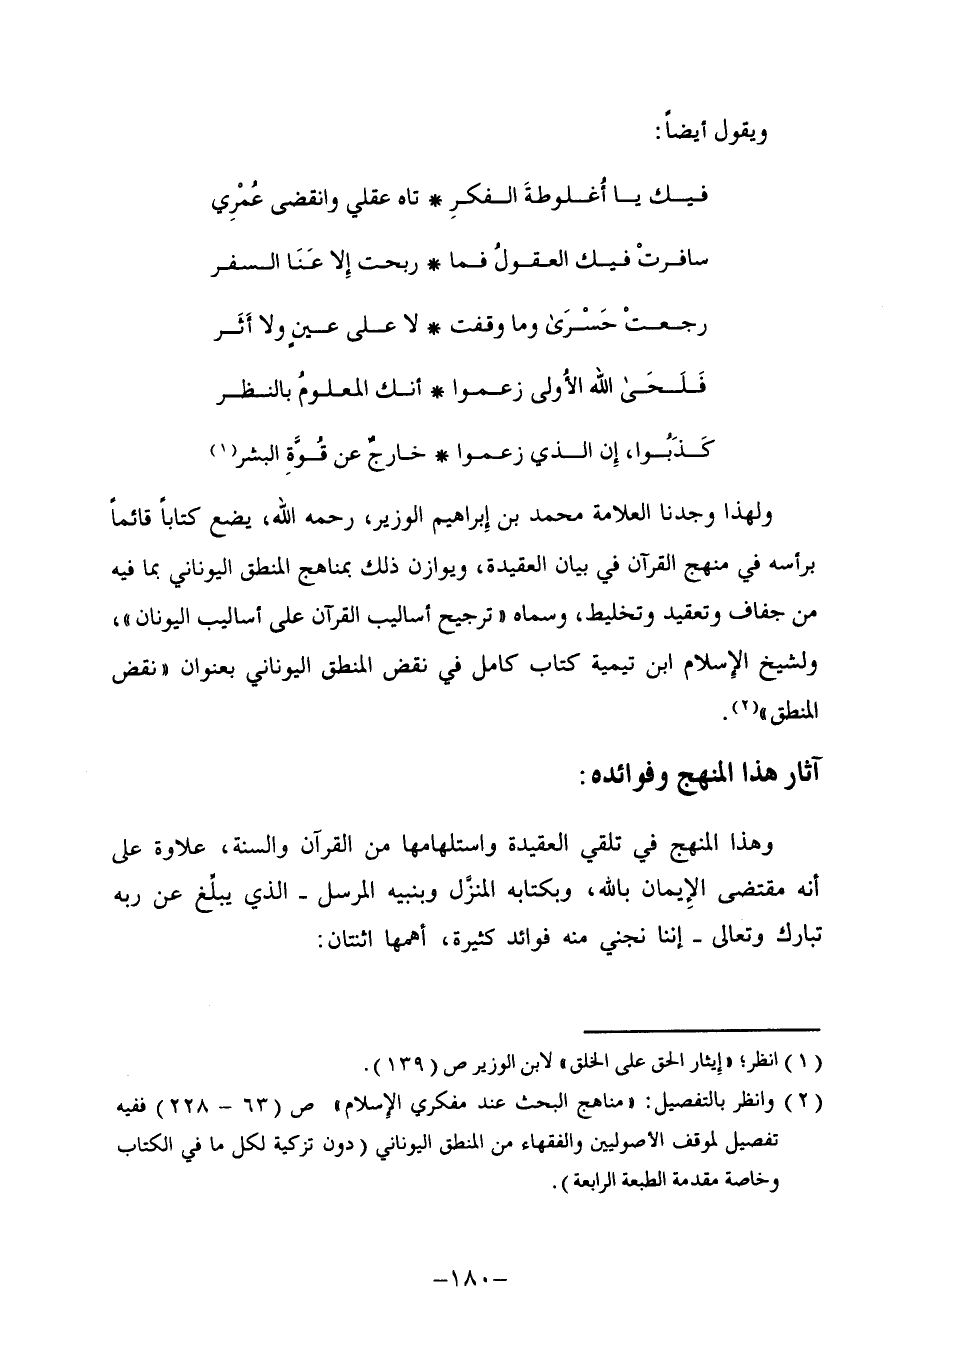 ويقول أيضاً:
فيــك يــا أُغــلوطةَ الــفكرِ * تاه عقلي وانقضى عُمْرِي
سافرتْ فيــك العقــولُ فــما * ربحت إلا عَنَا الــسفر
رجــعــتْ حَسْــرَىٰ وما وقفت * لا عــلى عــينٍ ولا أَثَــر
فَــلَــحَىٰ الله الأُولى زعــمــوا * أنــك المعلــومُ بالنــظــر
كَــذَبُــوا، إن الــذي زعــموا * خارجٌ عن قُــوَّةِ البشر(١)
ولهذا وجدنا العلامة محمد بن إبراهيم الوزير، رحمه الله، يضع كتاباً قائماً
برأسه في منهج القرآن في بيان العقيدة، ويوازن ذلك بمناهج المنطق اليوناني بما فيه
من جفاف وتعقيد وتخليط، وسماه «ترجيح أساليب القرآن على أساليب اليونان»،
ولشيخ الإسلام ابن تيمية كتاب كامل في نقض المنطق اليوناني بعنوان «نقض
المنطق»(٢).
آثار هذا المنهج وفوائده:
وهذا المنهج في تلقي العقيدة واستلهامها من القرآن والسنة، علاوة على
أنه مقتضى الإيمان بالله، وبكتابه المنزَّل وبنبيه المرسل ـ الذي يبلِّغ عن ربه
تبارك وتعالى ـ إننا نجني منه فوائد كثيرة، أهمها اثنتان:
(١) انظر؛ «إيثار الحق على الخلق» لابن الوزير ص (١٣٩).
(٢) وانظر بالتفصيل: «مناهج البحث عند مفكري الإسلام» ص (٦٣ - ٢٢٨) ففيه
تفصيل لموقف الأصوليين والفقهاء من المنطق اليوناني (دون تزكية لكل ما في الكتاب
وخاصة مقدمة الطبعة الرابعة).
-١٨٠-